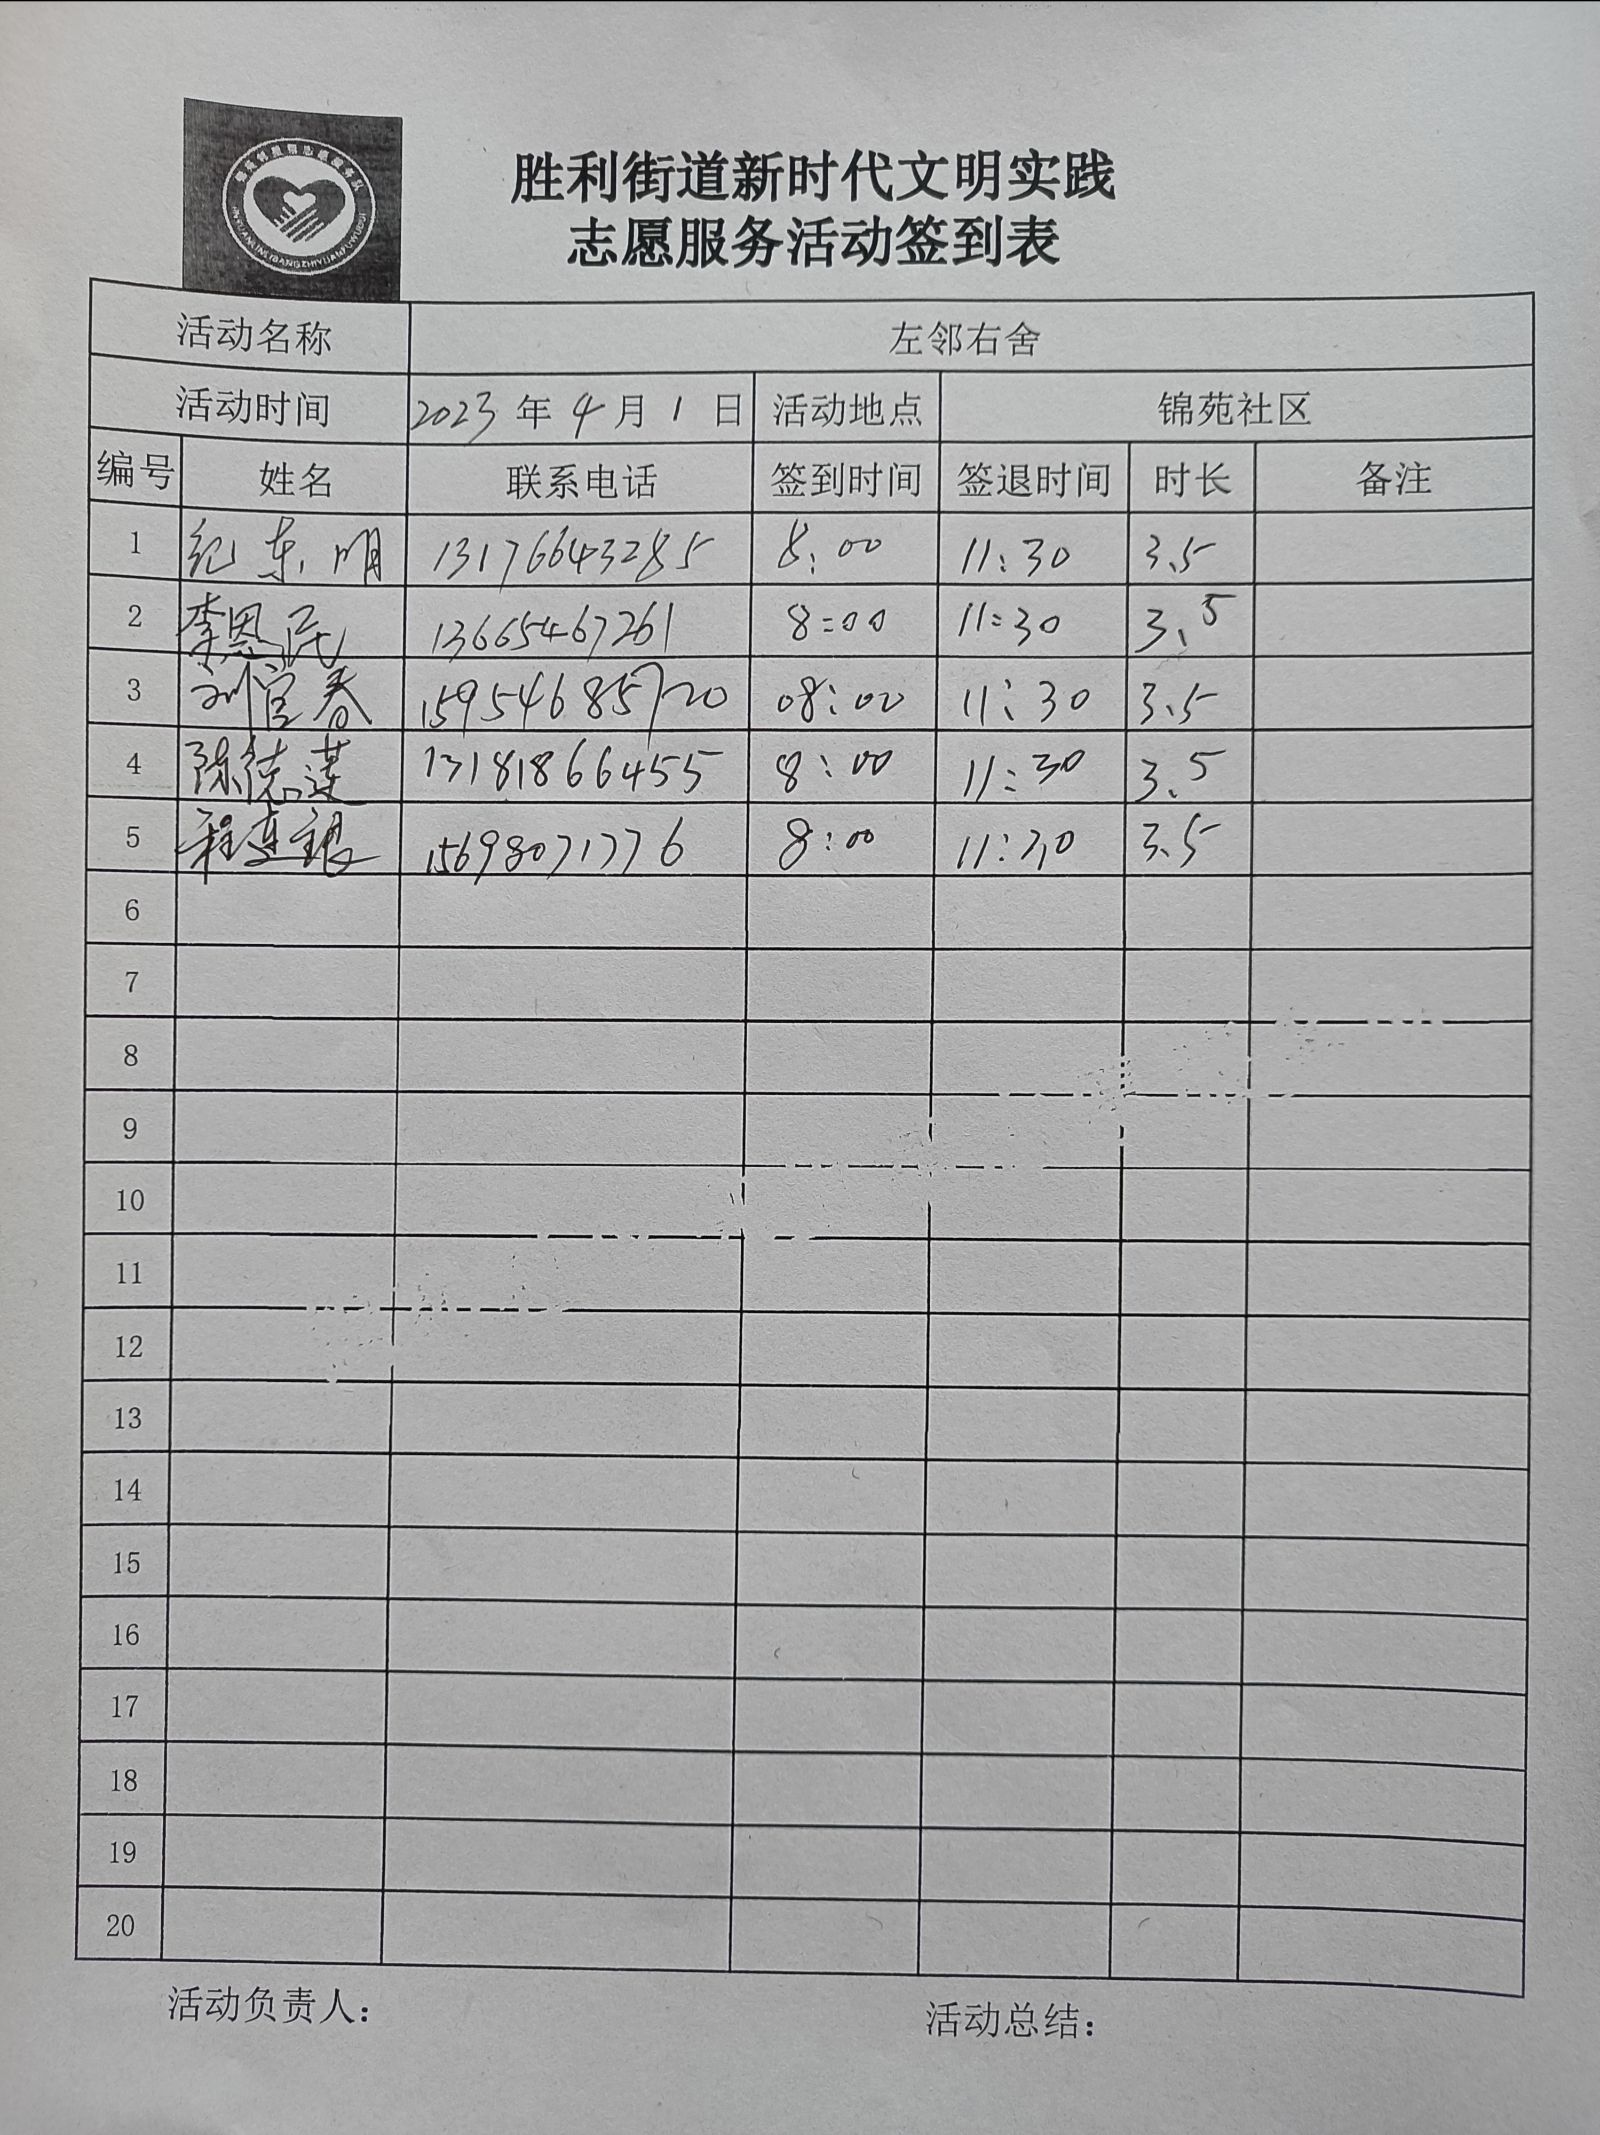 胜利街道新时代文明实践
志愿服务活动签到表
活动名称 左邻右舍
活动时间 2023 年 4 月 1 日 活动地点 锦苑社区
编号 姓名 联系电话 签到时间 签退时间 时长 备注
1 纪东明 13176643285 8:00 11:30 3.5
2 李恩民 13665467261 8:00 11:30 3.5
3 刘官春 15954685720 08:00 11:30 3.5
4 陈德莲 13181866455 8:00 11:30 3.5
5 程连银 15698071776 8:00 11:30 3.5
6
7
8
9
10
11
12
13
14
15
16
17
18
19
20
活动负责人: 活动总结: